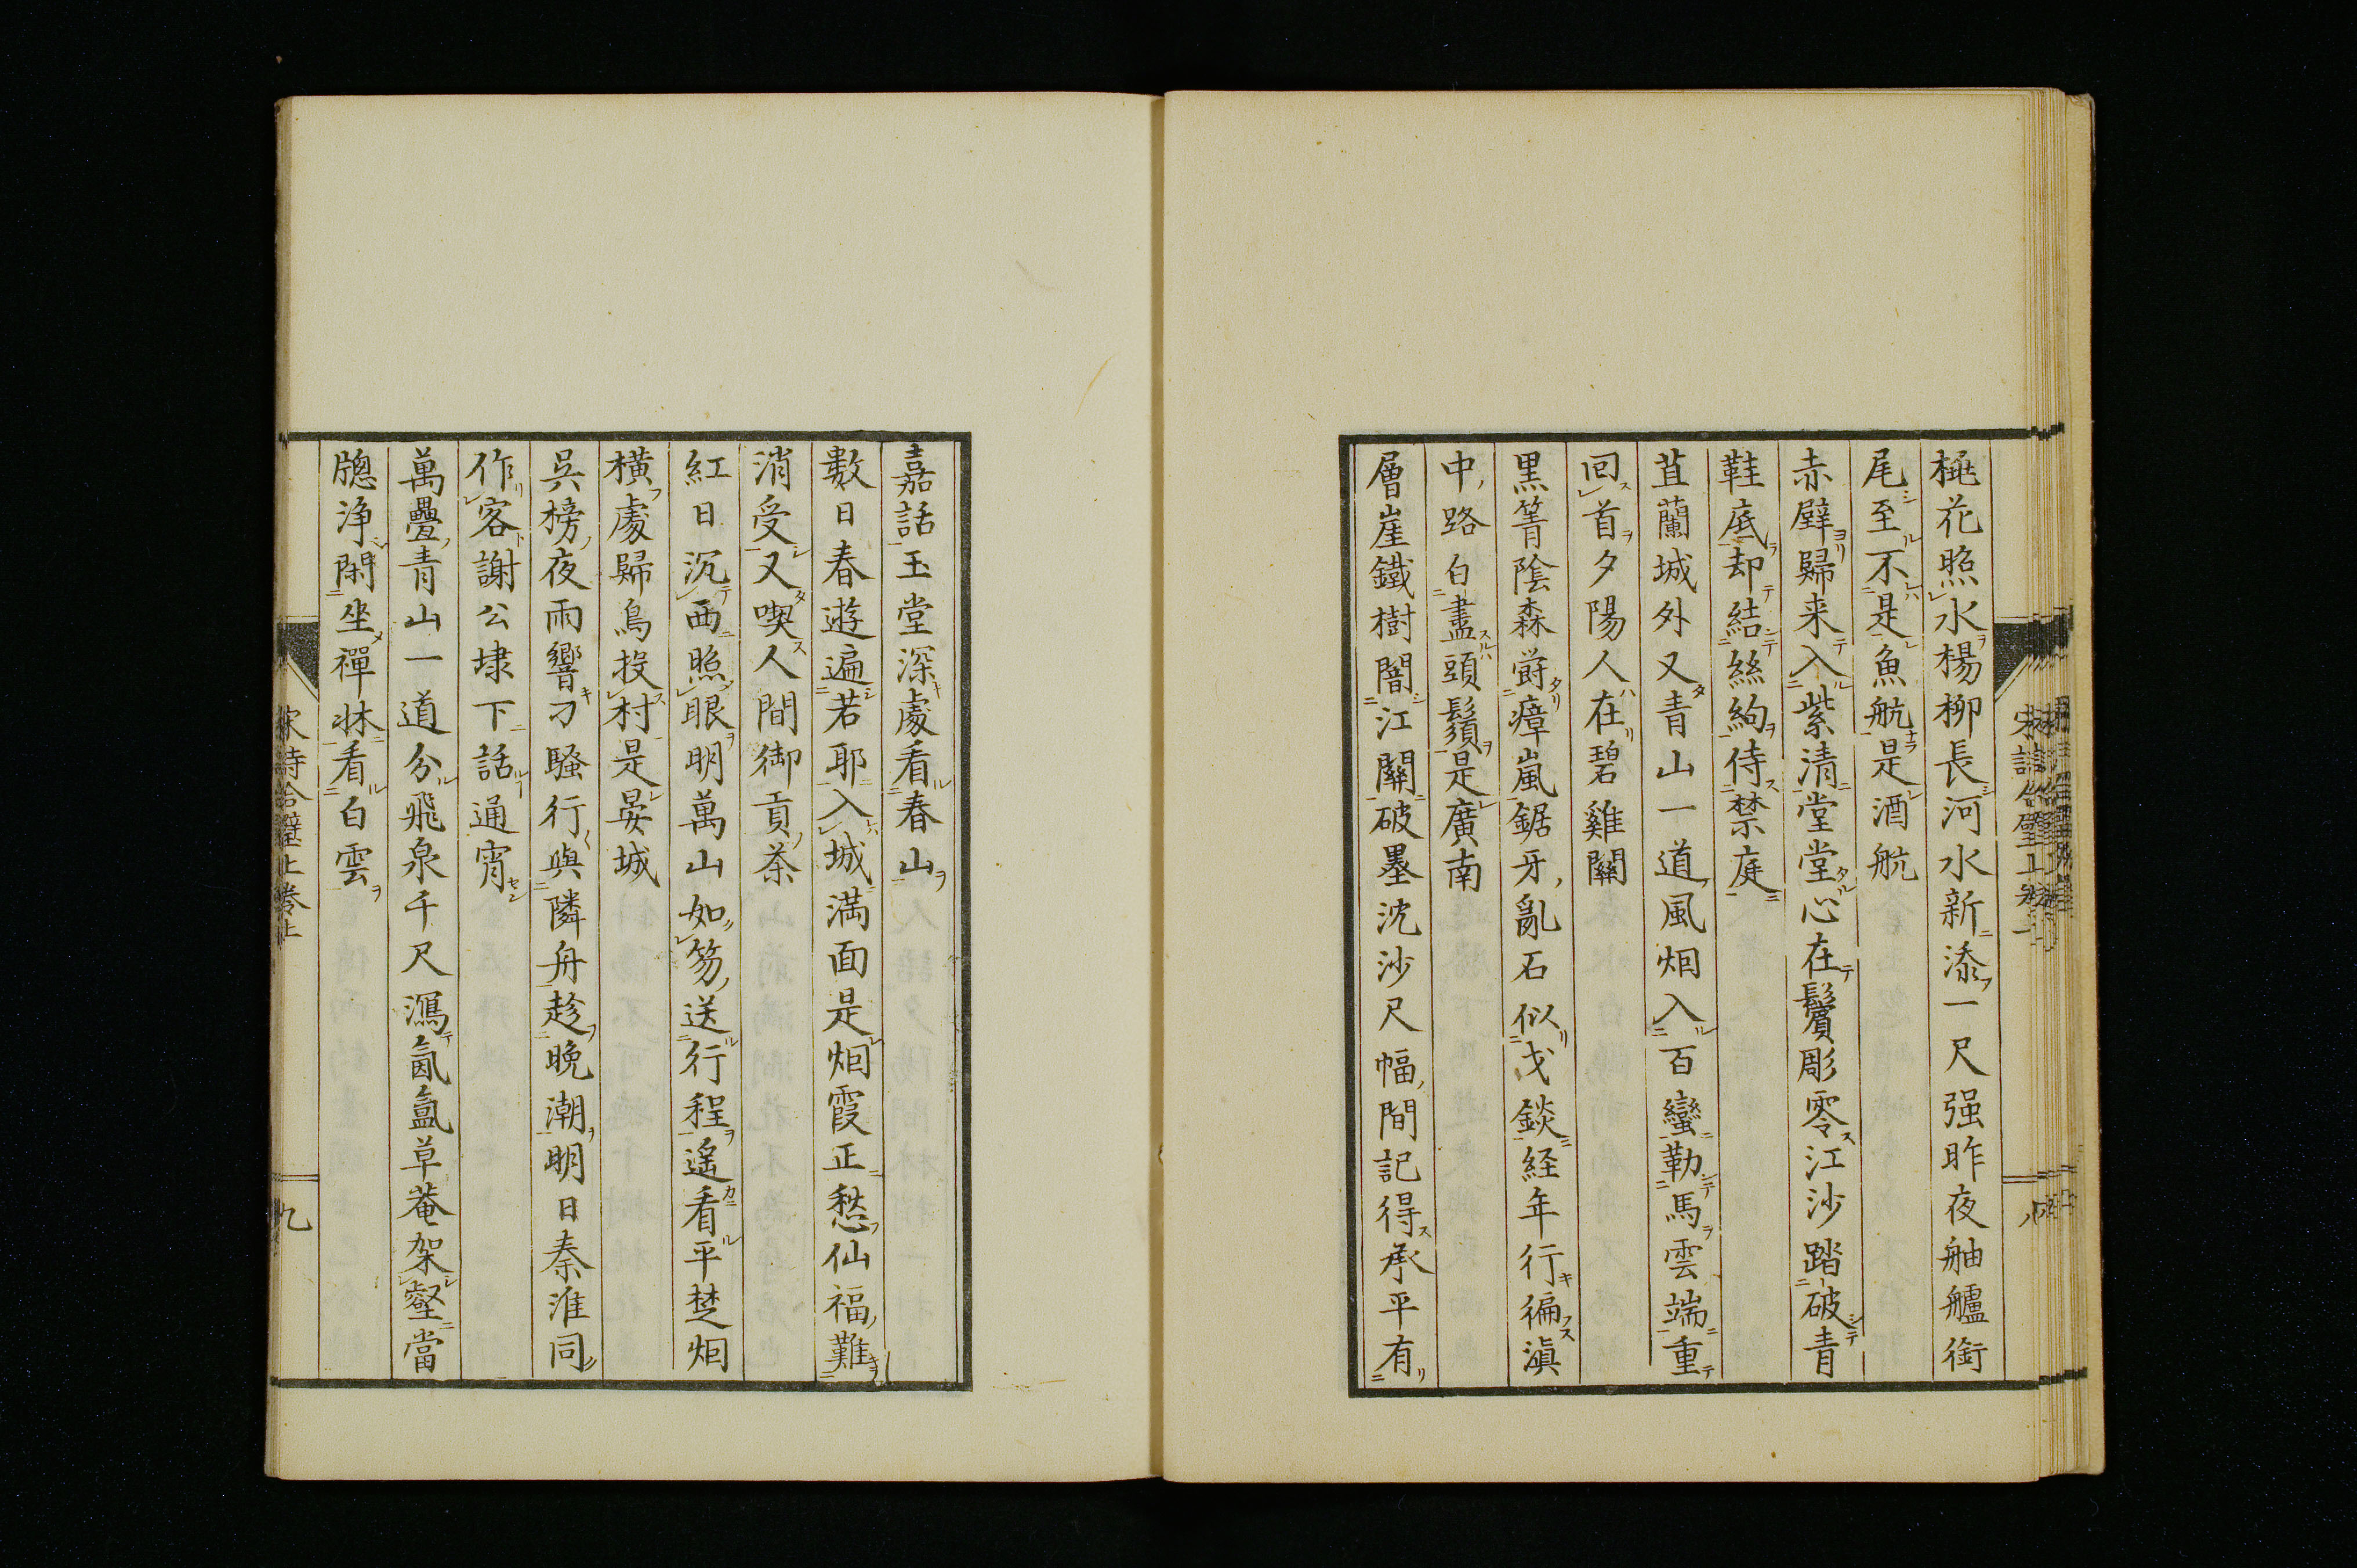 桃花照水楊柳長河水新添一尺强昨夜舳艫銜
尾至不是魚航是酒航
赤壁歸来入紫清堂堂心在鬢彫零江沙踏破青
鞋底却結絲絇侍禁庭
苴蘭城外又青山一道風烟入百蠻勒馬雲端重
回首夕陽人在碧雞關
黒箐陰森欝瘴嵐鋸牙亂石似戈錟経年行徧滇
中路白盡頭鬚是廣南
層崖鐵樹闇江關破墨沈沙尺幅間記得承平有
嘉話玉堂深處看春山
數日春遊遍若耶入城満面是烟霞正愁仙福難
消受又喫人間御貢茶
紅日沉西照眼明萬山如笏送行程遙看平楚烟
横處歸鳥投村是晏城
呉榜夜雨響刁騷行與隣舟趁晩潮明日秦淮同
作客謝公埭下話通宵
萬疊青山一道分飛泉千尺瀉氤氳草菴架壑當
牕浄閑坐禪牀看白雲
九